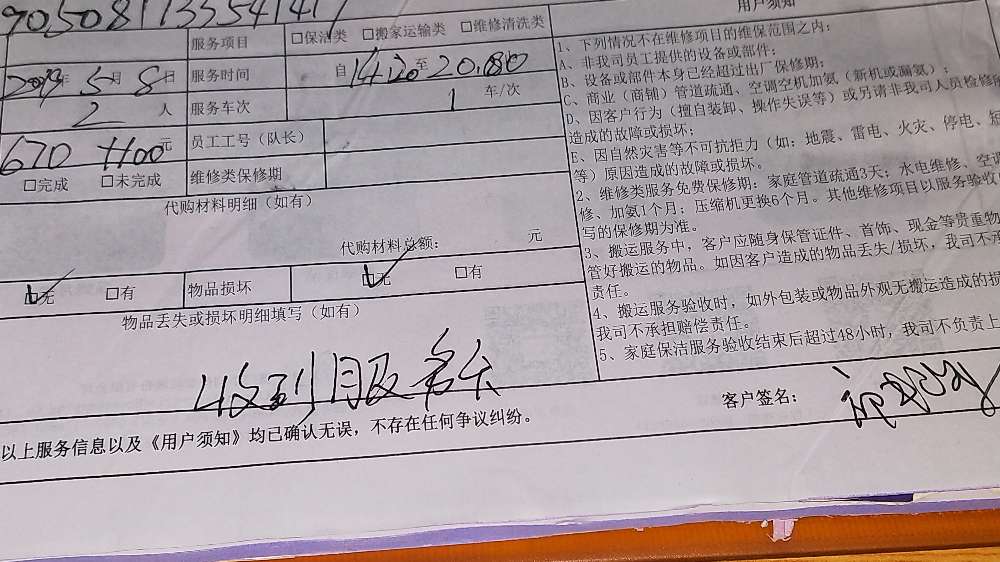 90508113554141
用户须知
服务项目 □保洁类 □搬家运输类 □维修清洗类
2019年 5月 8日 服务时间 自 14.20 至 20.00
2 人 服务车次 1 车/次
670 1100 元 员工工号（队长）
□完成 □未完成 维修类保修期
代购材料明细（如有）
代购材料总额： 元
□无 □有 物品损坏 □无 □有
物品丢失或损坏明细填写（如有）
收到
以上服务信息以及《用户须知》均已确认无误，不存在任何争议纠纷。
1、下列情况不在维修项目的维保范围之内：
A、非我司员工提供的设备或部件；
B、设备或部件本身已经超过出厂保修期；
C、商业（商铺）管道疏通、空调空机加氨（新机或漏氨）；
D、因客户行为（擅自装卸、操作失误等）或另请非我司人员检修
造成的故障或损坏；
E、因自然灾害等不可抗拒力（如：地震、雷电、火灾、停电、
等）原因造成的故障或损坏。
2、维修类服务免费保修期：家庭管道疏通3天；水电维修、空
修、加氨1个月；压缩机更换6个月。其他维修项目以服务验收
写的保修期为准。
3、搬运服务中，客户应随身保管证件、首饰、现金等贵重物
管好搬运的物品。如因客户造成的物品丢失/损坏，我司不
责任。
4、搬运服务验收时，如外包装或物品外观无搬运造成的损
我司不承担赔偿责任。
5、家庭保洁服务验收结束后超过48小时，我司不负责上
客户签名：